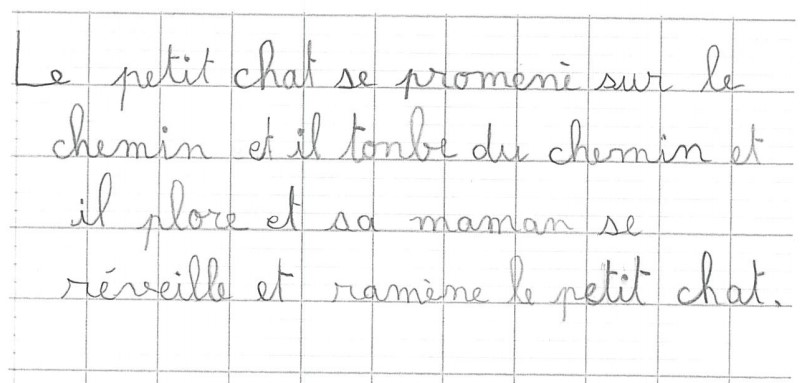 Le petit chat se promenè sur le
chemin et il tonbe du chemin et
il plore et sa maman se
réveille et ramène le petit chat.